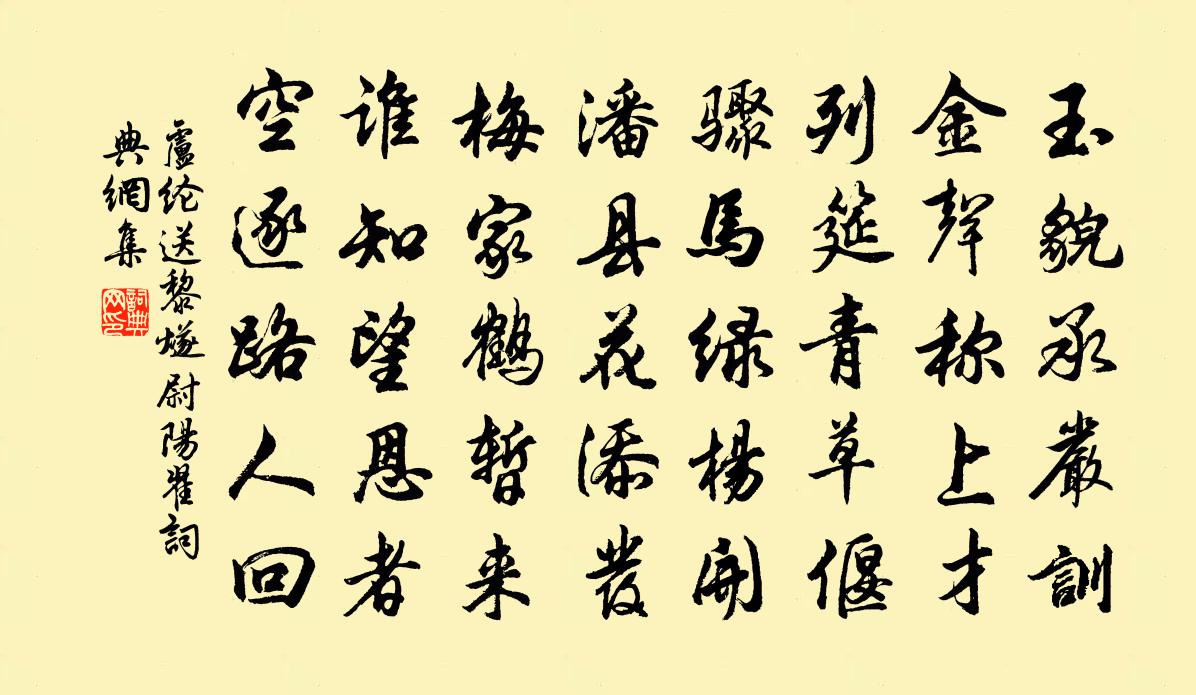 玉貌承嚴訓
金聲称上才
列筵青草偃
骤馬緑楊開
潘县花添發
梅家鶴暫来
谁知望恩者
空逐路人回
盧纶送黎燧尉陽翟詞
典網集
詞典
网印